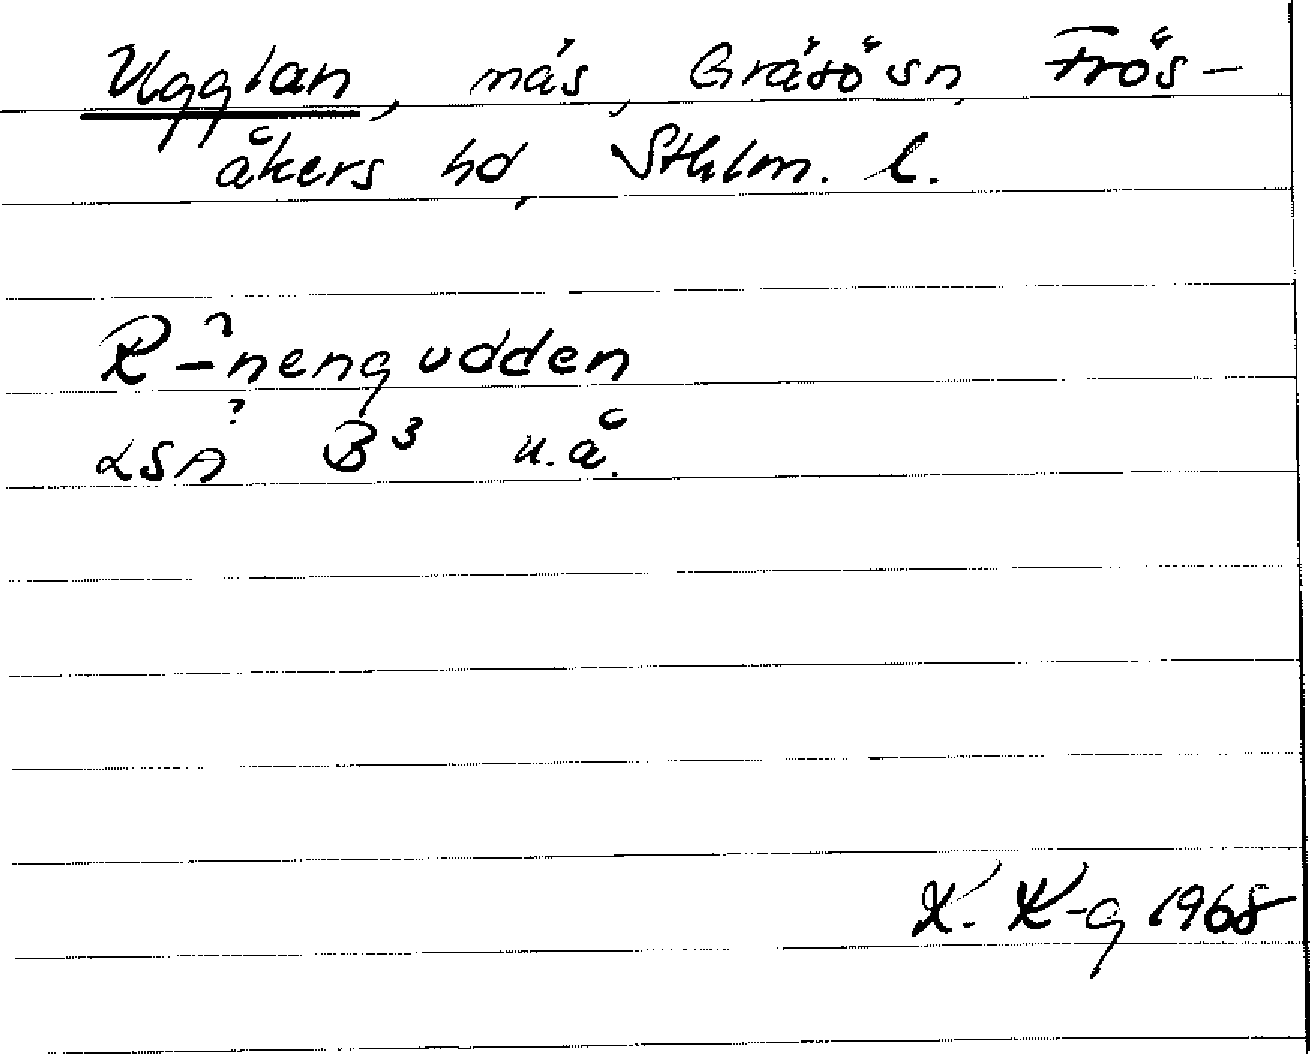 Ugglan, mås, Gräsö sn, Frös-
åkers hd, Sthlm. l.
R-nengudden
LSA B³ u.å.
K. K-g 1968